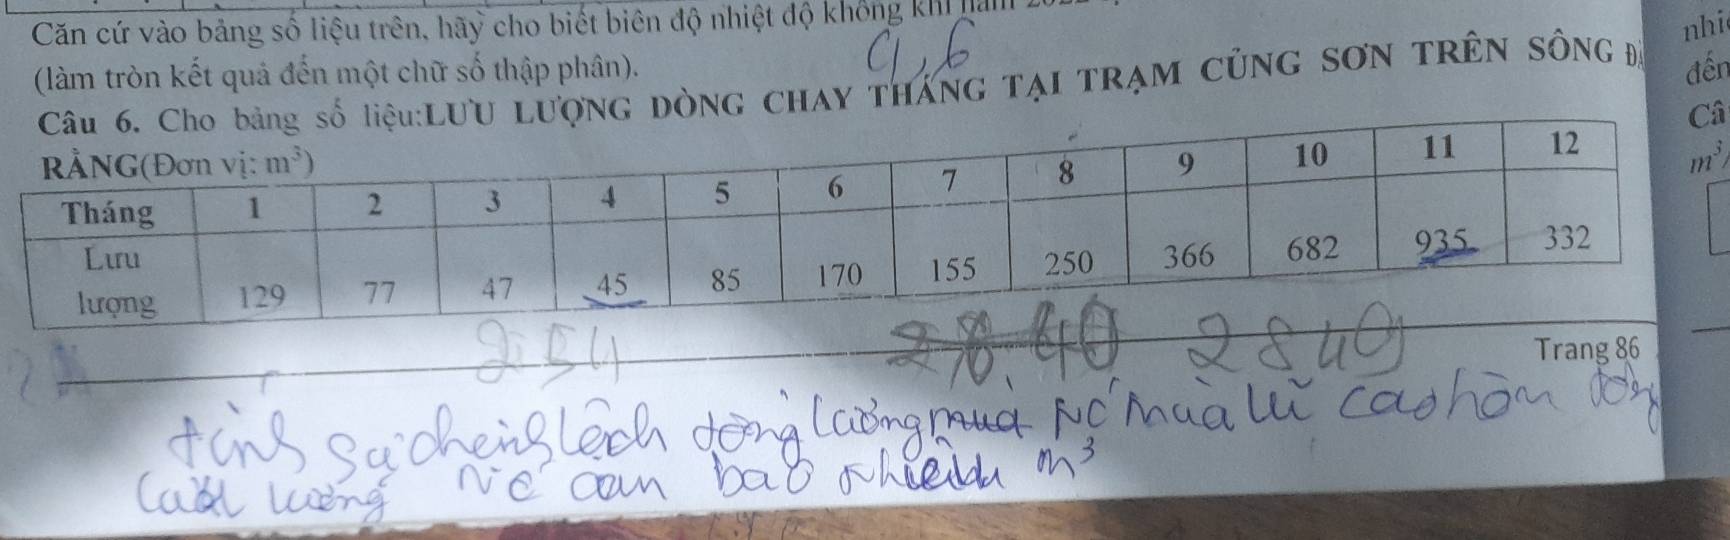 Căn cứ vào bảng số liệu trên, hãy cho biết biên độ nhiệt độ không khí năm
(làm tròn kết quả đến một chữ số thập phân).
9,6
Câu 6. Cho bảng số liệu:LƯU LƯỢNG DÒNG CHAY THÁNG TẠI TRẠM CỦNG SƠN TRÊN SÔNG ĐÀ
RẰNG(Đơn vị: m³)
Tháng 1 2 3 4 5 6 7 8 9 10 11 12
Lưu lượng 129 77 47 45 85 170 155 250 366 682 935 332
2840
Trang 86
tính sự chênh lệch tổng lượng nc mùa lũ cao hơn tổng
lượng nc cạn bao nhiêu m³
nhiệ
đến
Câ
m³/